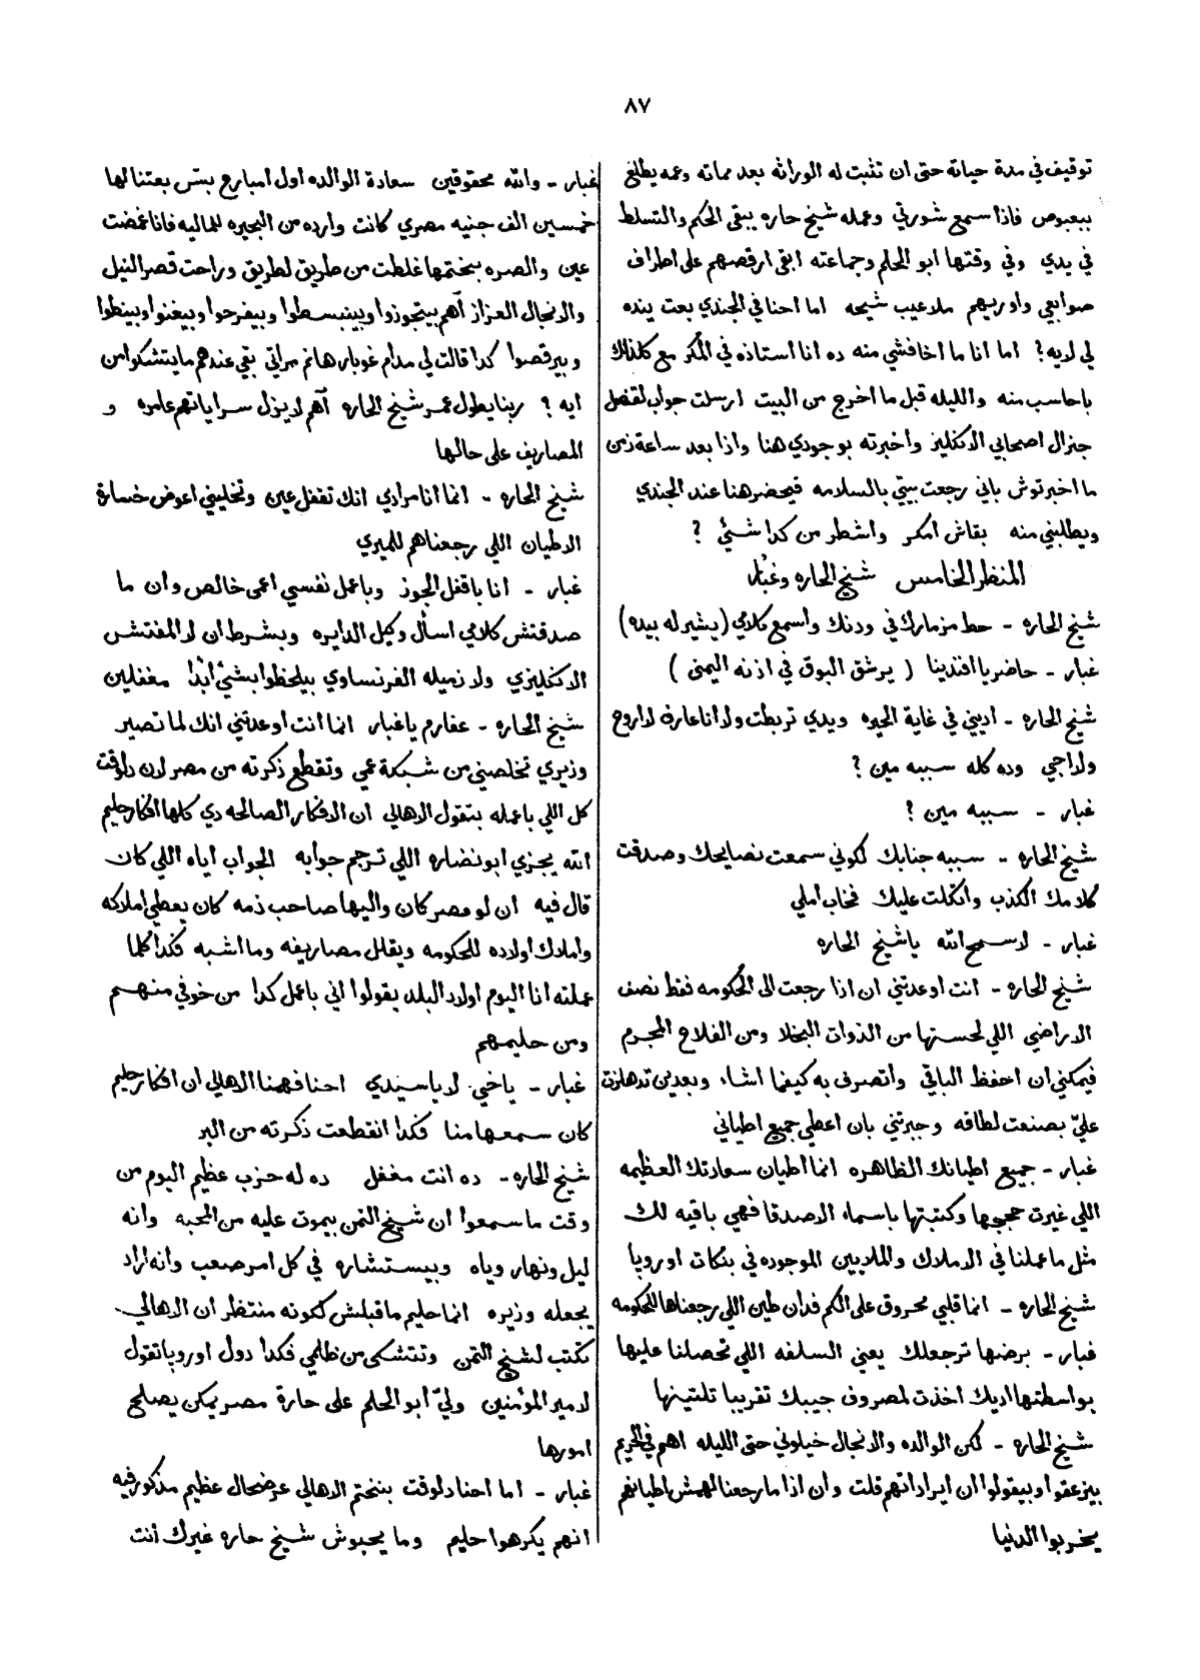 ٨٧
توقيف في مدة حياته حتى ان تثبت له الوراثه بعد مماته وعمه يطلع
ببعبوص فاذا سمع شورتي وعمله شيخ حاره يبقى الحكم والتسلط
في يدي وفي وقتها ابو الحلم وجماعته ابقى ارقصهم على اطراف
صوابعي واوريهم ملاعيب شيحه اما احنا في الجندي بعت ينده
لي لايه؟ اما انا ما اخافشي منه ده انا استاذه في المكر مع كلذلك
باحاسب منه والليله قبل ما اخرج من البيت ارسلت جواب لقنصل
جنرال اصحابي الانكليز واخبرته بوجودي هنا واذا بعد ساعة زمن
ما اخبرتوش باني رجعت بيتي بالسلامه فيحضر هنا عند الجندي
ويطلبني منه بقاش امكر واشطر من كدا شئي ؟
المنظر الخامس شيخ الحاره وغبار
شيخ الحاره - حط مزمارك في ودنك واسمع كلامي (يشير له بيده)
غبار - حاضر يا افندينا ( يرشق البوق في اذنه اليمنى )
شيخ الحاره - اديني في غاية الحيره ويدي تربطت ولا انا عارف لا اروح
ولا اجي وده كله سببه مين ؟
غبار - سببه مين ؟
شيخ الحاره - سببه جنابك لكوني سمعت نصايحك وصدقت
كلامك الكذب واتكلت عليك فخاب املي
غبار - لا سمح الله يا شيخ الحاره
شيخ الحاره - انت اوعدتني ان اذا رجعت الى الحكومه فقط نصف
الاراضي اللي لحستها من الذوات البخلا ومن الفلاح المجرم
فيمكني ان احفظ الباقي واتصرف به كيفما اشاء وبعدين تدهلزت
عليّ بصنعت لطافه وجبرتني بان اعطي جميع اطياني
غبار - جميع اطيانك الظاهره انما اطيان سعادتك العظيمه
اللي غيرت حججها وكتبتها باسماء الاصدقا فهي باقيه لك
مثل ما عملنا في الاملاك والملايين الموجوده في بنكات اوروپا
شيخ الحاره - انما قلبي محروق على الكم فدان طين اللي رجعناها للحكومه
غبار - برضها ترجعلك يعني السلفه اللي تحصلنا عليها
بواسطتها اديك اخذت لمصروف جيبك تقريبا تلتينها
شيخ الحاره - لكن الوالده والانجال خيلوني حتى الليله اهم في الحريم
بيزعقوا وبيقولوا ان ايراداتهم قلت وان اذا ما رجعنا لهمش اطيانهم
يخربوا الدنيا
غبار - والله محقوقين سعادة الوالده اول امبارح بس بعتنا لها
خمسين الف جنيه مصري كانت وارده من البحيره للماليه فانا غمضت
عين والصره بختمها غلطت من طريق لطريق وراحت قصر النيل
والانجال العزاز آهم بيتجوزوا وبينبسطوا وبيفرحوا وبيغنوا وبينطوا
وبيرقصوا كدا قالت لي مدام غوبار هانم مراتي بقي عندهم ما يتشكوا من
ايه ؟ ربنا يطول عمر شيخ الحاره آهم لا يزل سراياتهم عامره و
المصاريف على حالها
شيخ الحاره - انما انا مرادي انك تقفل عين وتخليني اعوض خسارة
الاطيان اللي رجعناهم للميري
غبار - انا باقفل الجوز وباعمل نفسي اعمى خالص وان ما
صدقتش كلامي اسأل وكيل الدايره وبشرط ان لا المفتش
الانكليزي ولا زميله الفرنساوي بيلحظوا بشئ ابدا مغفلين
شيخ الحاره - عفارم يا غبار انما انت اوعدتني انك لما تصير
وزيري تخلصني من شبكة عمي وتقطع ذكرته من مصر لان دلوقت
كل اللي باعمله بتقول الاهالي ان الافكار الصالحه دي كلها افكار حليم
الله يجزي ابو نضاره اللي ترجم جوابه الجواب اياه اللي كان
قال فيه ان لو مصر كان واليها صاحب ذمه كان يعطي املاكه
واملاك اولاده للحكومه ويقلل مصاريفه وما اشبه فكدا كلما
عملته انا اليوم اولاد البلد يقولوا اني باعمل كدا من خوفي منهم
ومن حليمهم
غبار - ياخي لا يا سيدي احنا فهمنا الاهالي ان افكار حليم
كان سمعها منا فكدا انقطعت ذكرته من البر
شيخ الحاره - ده انت مغفل ده له حزب عظيم اليوم من
وقت ما سمعوا ان شيخ التمن بيموت عليه من المحبه وانه
ليل ونهار وياه وبيستشاره في كل امر صعب وانه اراد
يجعله وزيره انما حليم ما قبلش لكونه منتظر ان الاهالي
تكتب لشيخ التمن وتتشكى من ظلمي فكدا دول اوروپا تقول
لامير المؤمنين وليّ ابو الحلم على حارة مصر يمكن يصلح
امورها
غبار - اما احنا دلوقت بنختم الاهالي عرضحال عظيم مذكور فيه
انهم يكرهوا حليم وما يحبوش شيخ حاره غيرك انت